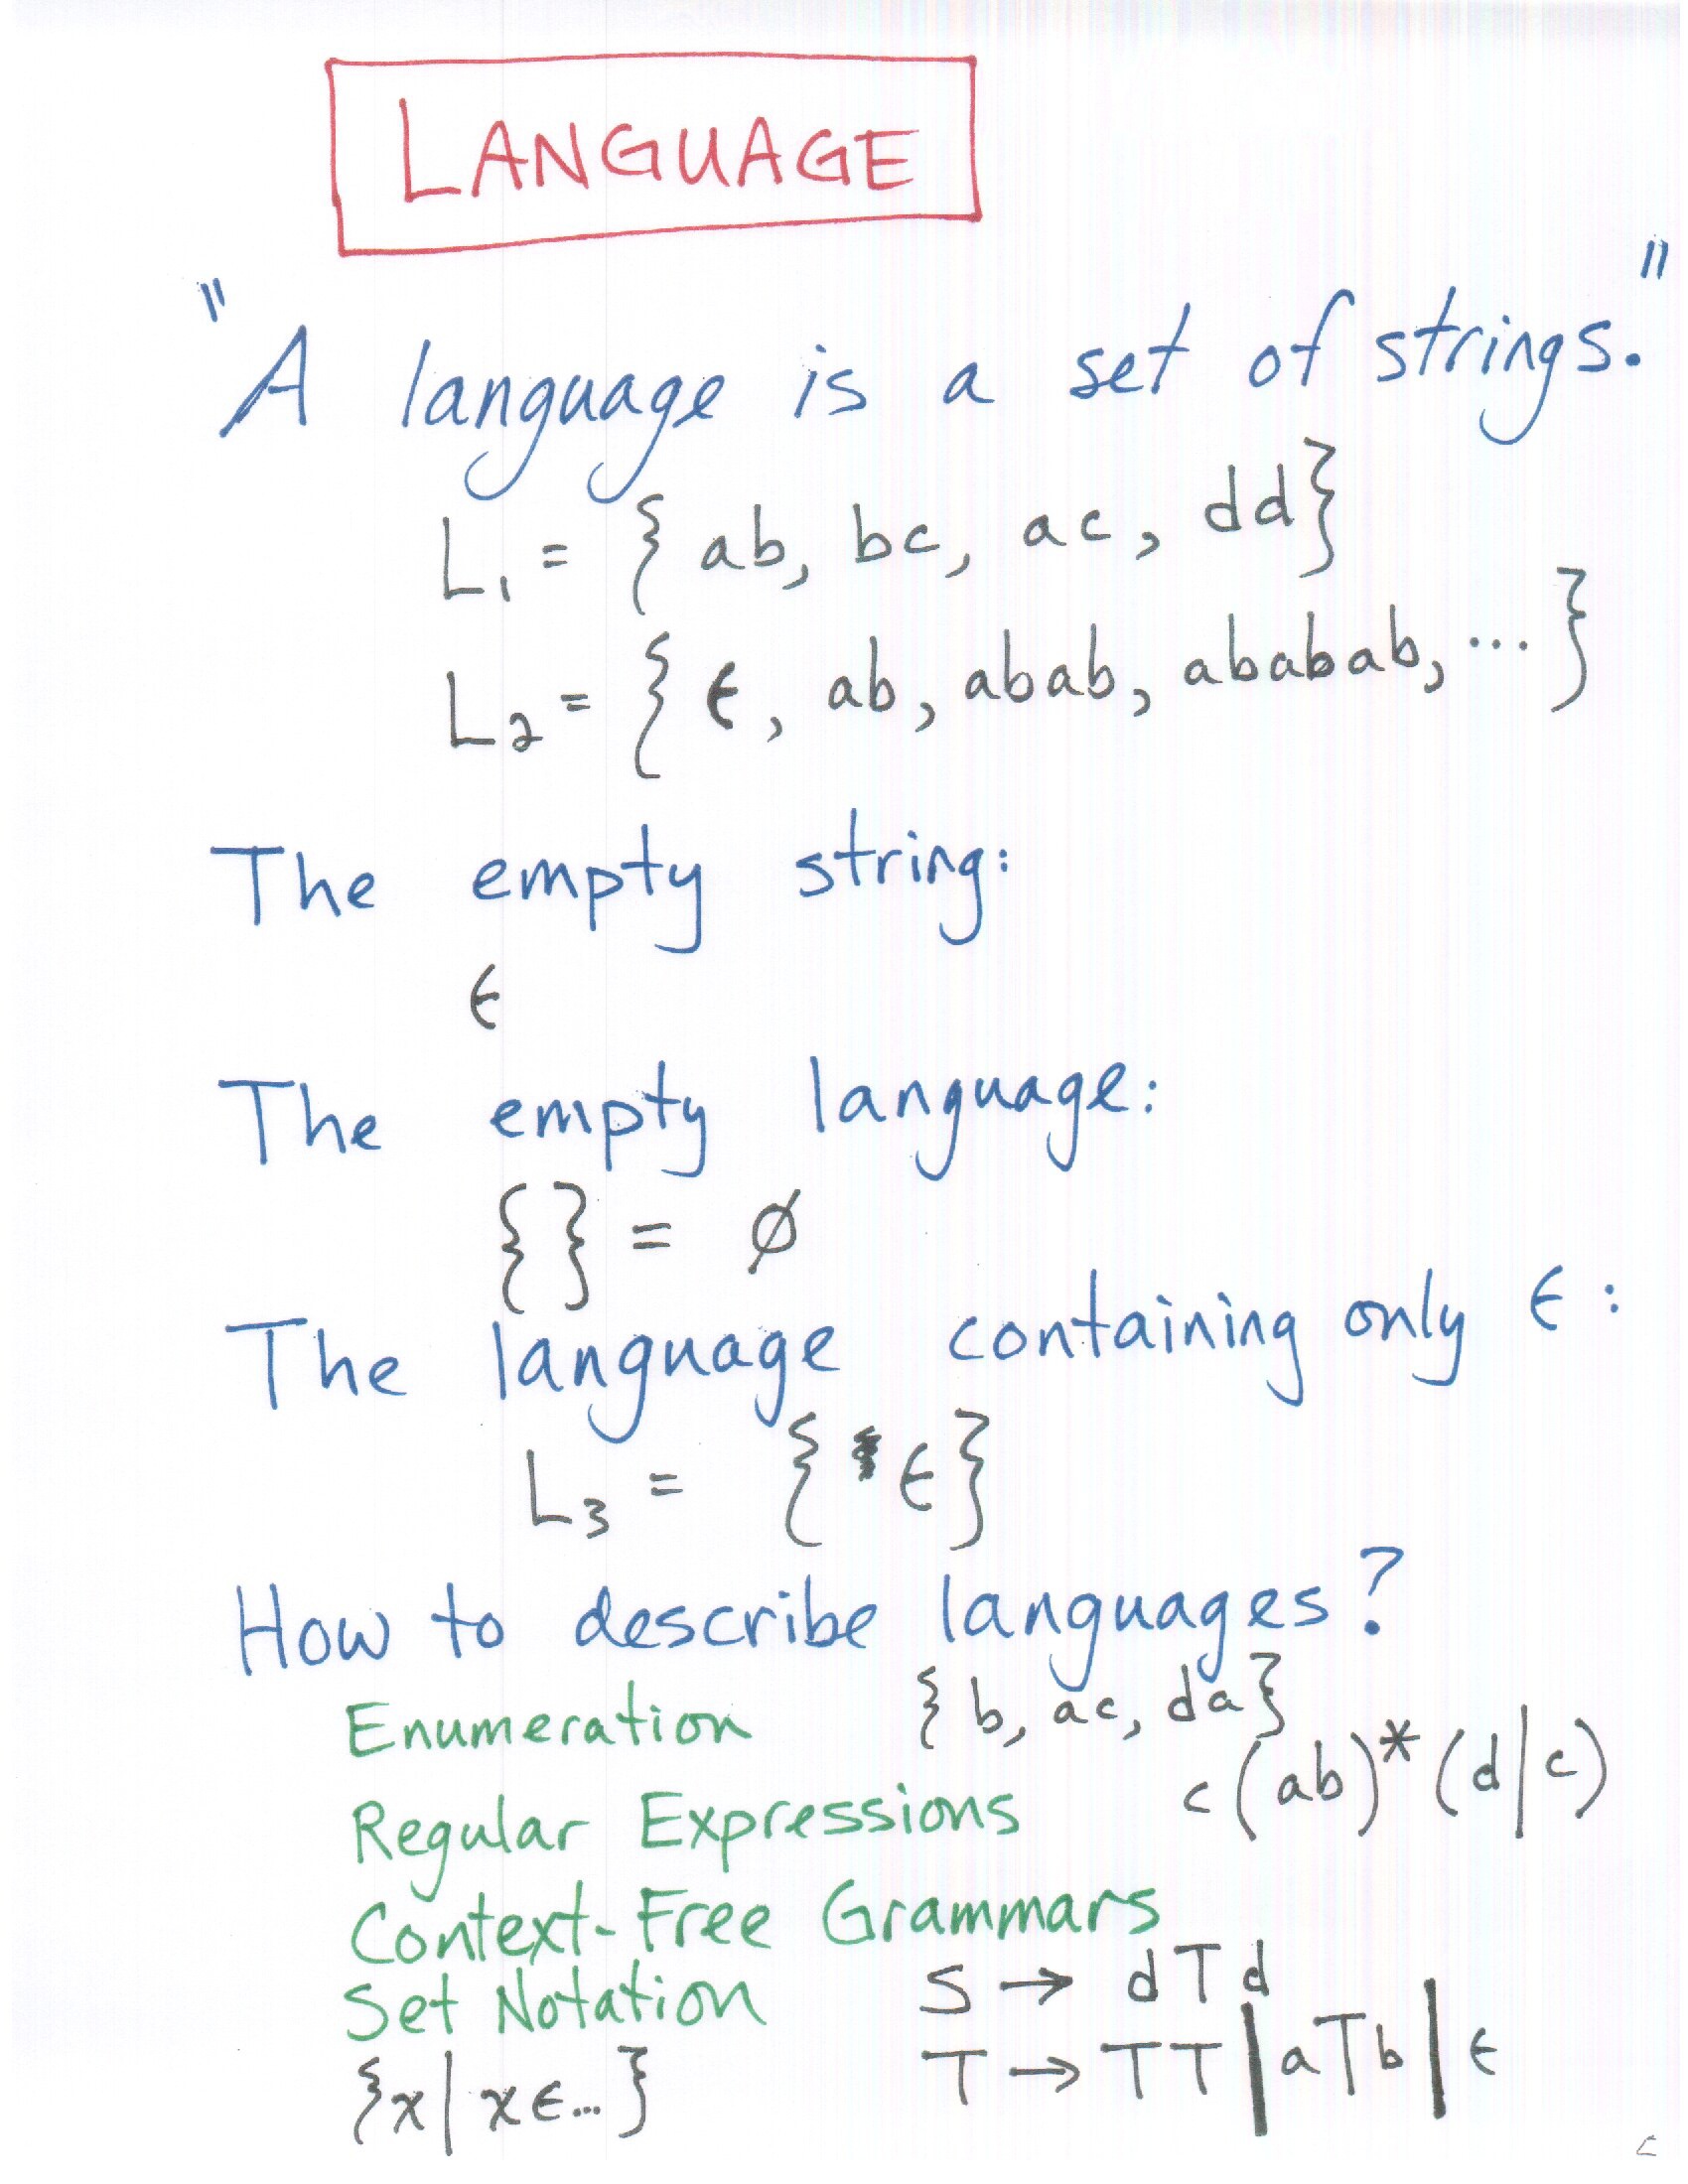 LANGUAGE
"A language is a set of strings."
L₁ = { ab, bc, ac, dd}
L₂ = { ϵ, ab, abab, ababab, ... }
The empty string:
ϵ
The empty language:
{ } = ∅
The language containing only ϵ:
L₃ = { ϵ}
How to describe languages?
Enumeration { b, ac, da}
Regular Expressions c(ab)*(d|c)
Context-Free Grammars
S → dTd
T → TT | aTb | ϵ
Set Notation
{x | x ϵ ... }